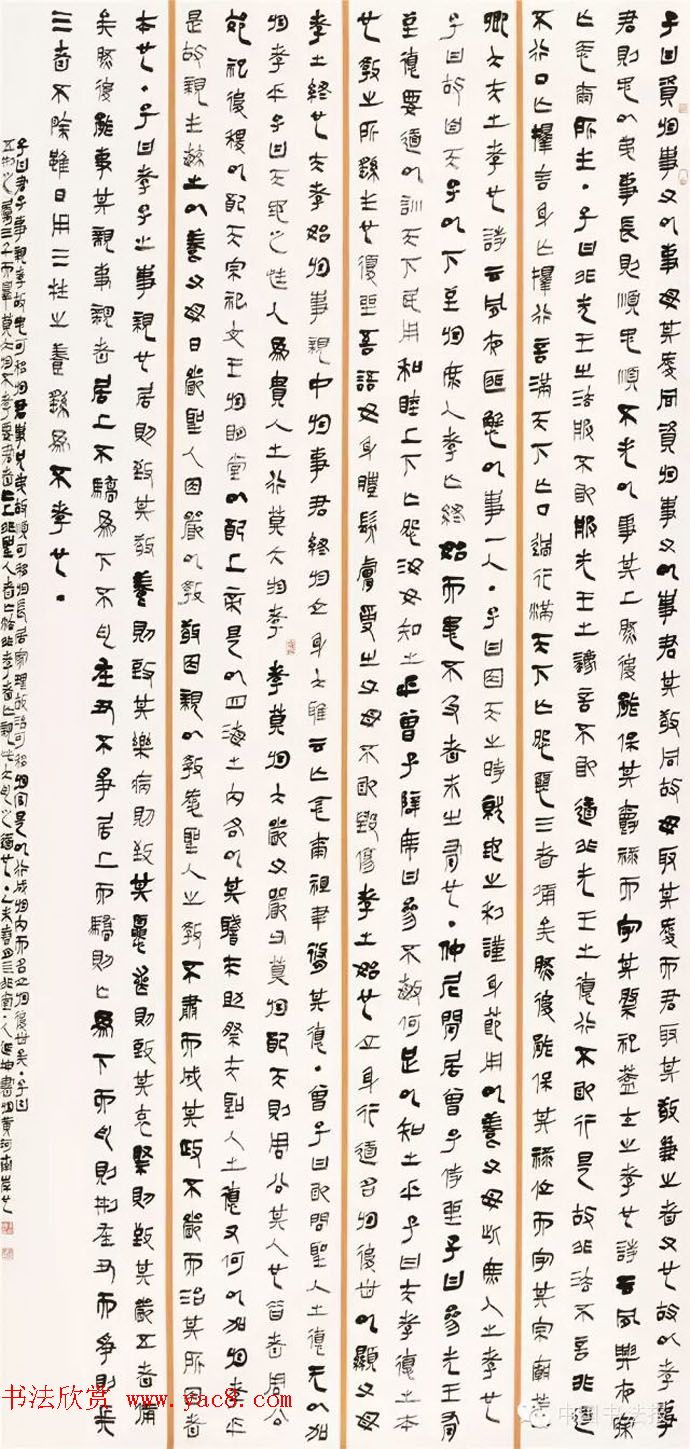 子曰資於事父以事母其愛同資於事父以事君其敬同故母取其愛而君取其敬兼之者父也故以孝事
君則忠以弟事長則順忠順不失以事其上然後能保其爵祿而守其祭祀蓋士之孝也詩云夙興夜寐
亡忝爾所生・子曰非先王之法服不敢服先王之法言不敢道非先王之德行不敢行是故非法不言非道
不行口亡擇言身亡擇行言滿天下亡口過行滿天下亡怨惡三者備矣然後能保其祿位而守其宗廟蓋
卿大夫之孝也詩云夙夜匪懈以事一人・子曰因天之時就地之利謹身節用以養父母此庶人之孝也
子曰故自天子以下至於庶人孝亡終始而患不及者未之有也・仲尼閒居曾子侍坐子曰參先王有
至德要道以訓天下民用和睦上下亡怨汝知之乎曾子避席曰參不敏何足以知之乎子曰夫孝德之本
也教之所繇生也復坐吾語汝身體髮膚受之父母不敢毀傷孝之始也立身行道名於後世以顯父母
孝之終也夫孝始於事親中於事君終於立身大雅云亡念爾祖聿修其德・曾子曰敢問聖人之德亡以加
於孝乎子曰天地之性人為貴人之行莫大於孝 孝莫於大嚴父嚴父莫於配天則周公其人也昔者周公
郊祀后稷以配天宗祀文王於明堂以配上帝是以四海之內各以其職來助祭夫聖人之德又何以加於孝乎
是故親生毓之以養父母曰嚴聖人因嚴以教敬因親以教愛聖人之教不肅而成其政不嚴而治其所因者
本也・子曰孝子之事親也居則致其敬養則致其樂病則致其憂喪則致其哀祭則致其嚴五者備
矣然後能事其親事親者居上不驕為下不亂在丑不爭居上而驕則亡為下而亂則刑在丑而爭則兵
三者不除雖日用三牲之養繇為不孝也・
子曰君子事親孝故忠可移於君事兄弟故順可移於長居家理故治可移於官是以行成於內而名立於後世矣・子曰
五刑之屬三千而辠莫大於不孝要君者亡上非聖人者亡法非孝者亡親此大亂之道也・書於黃河南岸也
书法欣赏 www.yac8.com
中国书法报